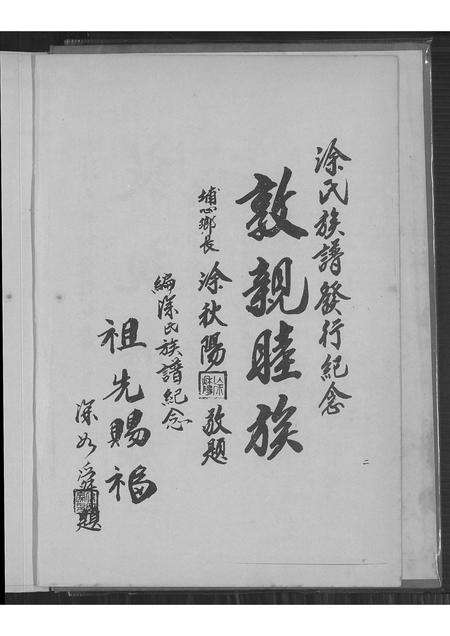 涂氏族譜發行紀念
敦親睦族
埔心鄉長 涂秋陽 敬題
編涂氏族譜紀念
祖先賜福
涂
題
二